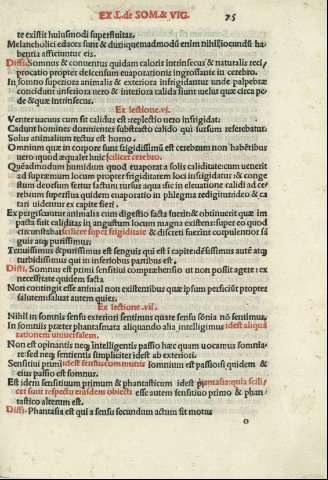 EX.L.de SOM.& VIG. 75
te existit huiusmodi superfluitas.
Melancholici edaces sunt & dutique madmodū enim nihil iocundū ha
bentia afficiuntur eis.
Diffi. Somnus & conuentus quidam caloris intrinsecus & naturalis reci/
procatio propter delcensum euaporationis ingrossante in cerebro.
In somno superiora animalis & exteriora infrigidantur unde palpebræ
concidunt inferiora uero & interiora calida sunt uelut quæ circa pe
de & quæ intrinsecus.
Ex lectione.vi.
Venter uacuus cum sit calidus est: repletio uero infrigidat.
Cadunt homines dormientes substracto calido qui sursum referebatur.
Solus animalium rectus est homo.
Omnium quæ in corpore sunt frigidissimū est cerebrum non habētibus
uero quod æquale huic scilicet cerebro.
Quēadmodum humidum quod euaporat a solis caliditate: cum uenerit
ad supremum locum propter frigiditatem loci infrigidatur: & conge
stum deorsum fertur factum rursus aqua: sic in eleuatione calidi ad ce
rebrum superflua quidem euaporatio in phlegma redigitur: ideo & ca
tari uidentur ex capite fieri.
Expergiscuntur animalia cum digestio facta fuerit & obtinuerit quæ im
pacta fuit caliditas in angustum locum magna existens: super eo quod
circumstabat scilicet super frigiditate & discreti fuerint corpulentior sā
guis atq; purissimus.
Tenuissimus & purissimus est senguis qui est ī capite dēsissimus autē atq;
turbidissimus qui in inferioribus partibus est.
Diffi. Somnus est primi sensitiui comprehensio ut non possit agere: ex
necessitate quidem facta
Non contingit esse animal non existentibus quæ ipsum perficiūt propter
salutem: saluat autem quies.
Ex lectione.vii.
Nihil in somnis sensu exteriori sentimus quare sensu sōnia nō sentimus.
In somnis præter phantasmata aliquando alia intelligimus idest aliquā
rationem uniuersalem.
Non est opinantis neq; intelligentis passio hæc quam uocamus somnia/
re: sed neq; sentientis simpliciter idest ab exteriori.
Sensitiui primi idest sensus communis somnium est passiosi quidem &
eius passio est somnus.
Est idem sensitiuum primum & phantasticum idest phantasia: quia scili/
cet sunt respectu eiusdem obiecti esse autem sensitiuo primo & phan/
tastico alterum est.
Diffi. Phantasia est qui a sensu secundum actum fit motus
o